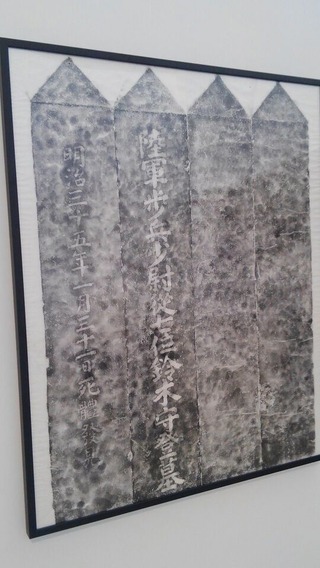 陸軍歩兵少尉從七位鈴木守登墓
明治三十五年一月三十一日死體發見